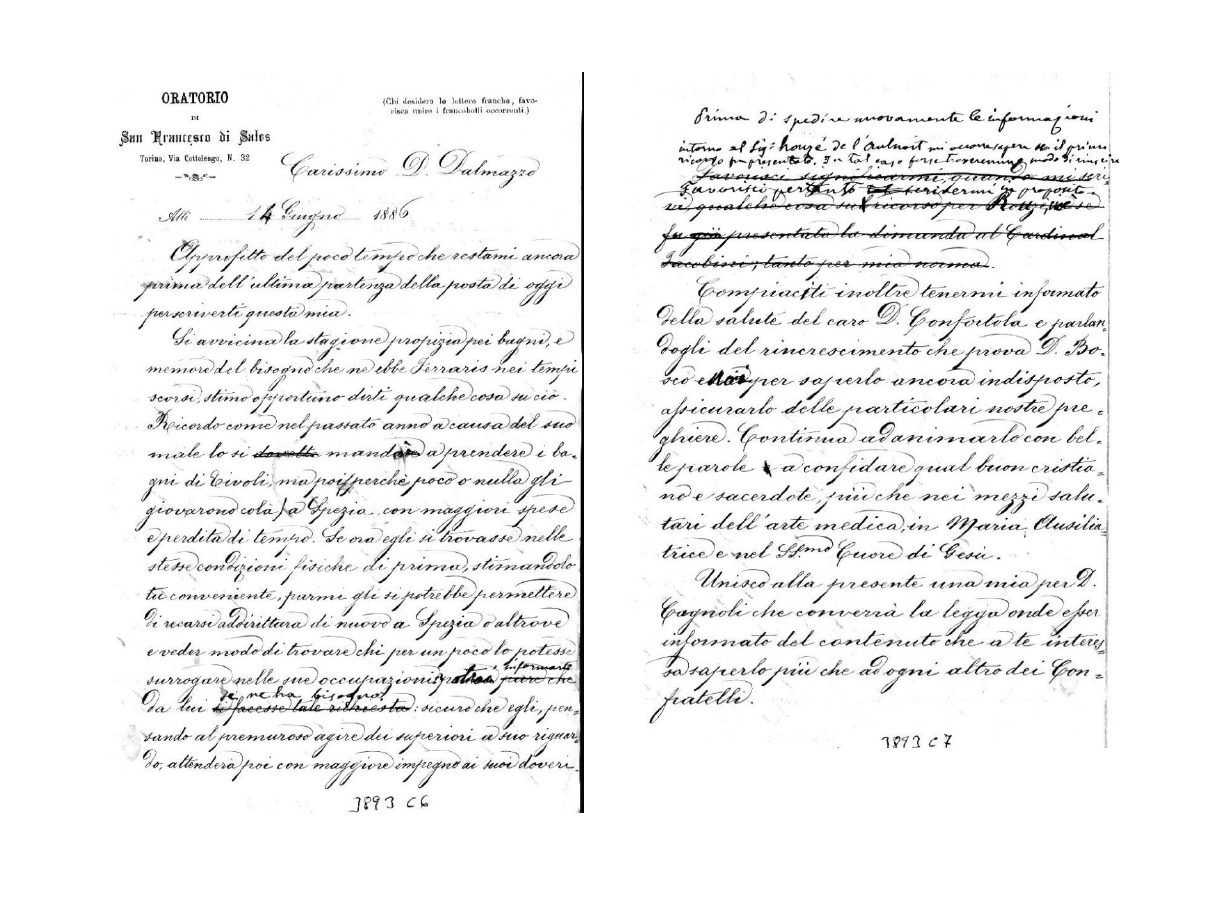 ORATORIO
DI
San Francesco di Sales
Torino, Via Cottolengo, N. 32
(Chi desidera le lettere franche, favo-
risca unire i francobolli occorrenti.)
Carissimo D. Dalmazzo
Alli 14 Giugno 1886
Approfitto del poco tempo che restami ancora
prima dell'ultima partenza della posta di oggi
per scriverti questa mia.
Si avvicina la stagione propizia pei bagni, e
memore del bisogno che ne ebbe Ferraris nei tempi
scorsi, stimo opportuno dirti qualche cosa su ciò.
Ricordo come nel passato anno a causa del suo
male lo si dovette mandare a prendere i ba-
gni di Tivoli, ma poi (perchè poco o nulla gli
giovarono colà) a Spezia con maggiori spese
e perdita di tempo. Se ora egli si trovasse nelle
stesse condizioni fisiche di prima, stimandolo
tu conveniente, parmi gli si potrebbe permettere
di recarsi addirittura di nuovo a Spezia o altrove
e veder modo di trovare chi per un poco lo potesse
surrogare nelle sue occupazioni; potrai informarti
da lui se ne ha bisogno! se facesse tale richiesta: sicuro che egli, pen-
sando al premuroso agire dei superiori a suo riguar-
do, attenderà poi con maggiore impegno ai suoi doveri.
3893 C6
Prima di spedire nuovamente le informazioni
intorno al Sig. houzé de l'Aulnoit mi occorre sapere se il primo
ricorso fu presentato. In tal caso forse troveremmo modo di riuscire
Favorisci significarmi, quando mi scri-
Favorisci pertanto scrivermi in proposito.
vi, qualche cosa sul ricorso per Rouzé, se
fu già presentata la dimanda al Cardinal
Jacobini; tanto per mia norma.
Compiaciti inoltre tenermi informato
della salute del caro D. Confortola e parlan-
dogli del rincrescimento che prova D. Bo-
sco e noi per saperlo ancora indisposto,
assicurarlo delle particolari nostre pre-
ghiere. Continua ad animarlo con bel-
le parole a confidare qual buon cristia-
no e sacerdote, più che nei mezzi salu-
tari dell'arte medica, in Maria Ausilia-
trice e nel SS.mo Cuore di Gesù.
Unisco alla presente una mia per D.
Cagnoli che converrà la legga onde esser
informato del contenuto che a te interes-
sa saperlo più che ad ogni altro dei Con-
fratelli.
3893 C7